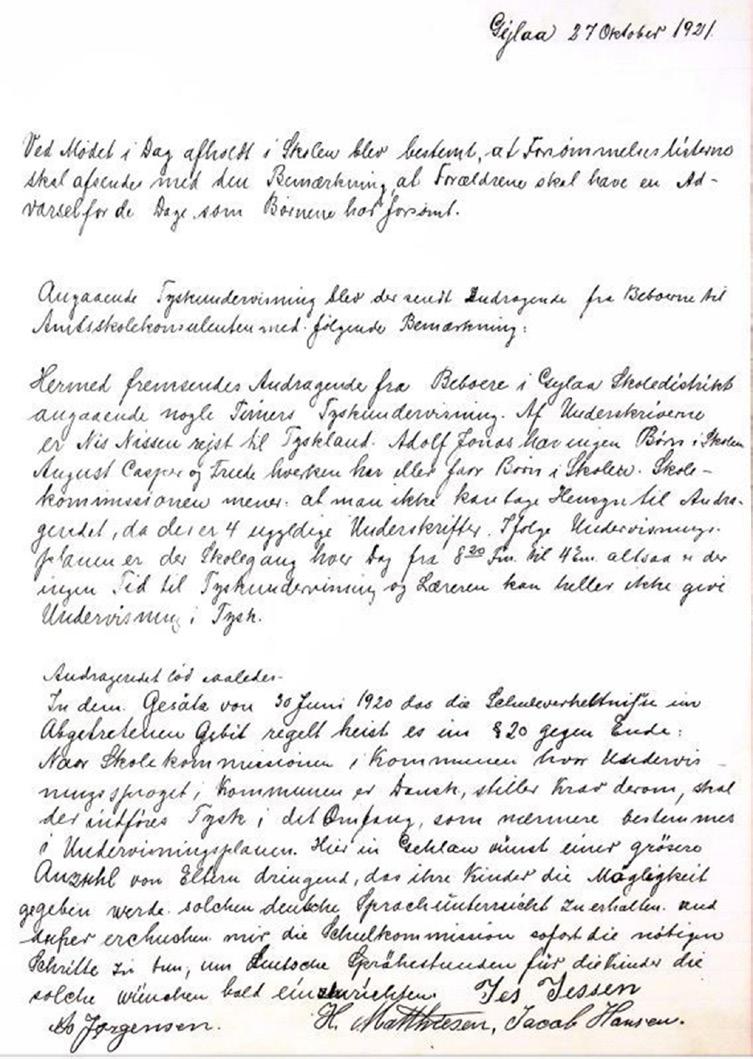 Gejlaa 27 Oktober 1921.
Ved Mødet i Dag afholdt i Skolen blev bestemt, at Forsømmelseslisterne
skal afsendes med den Bemærkning, at Forældrene skal have en Ad-
varsel for de Dage som Børnene har forsømt.
Angaaende Tyskundervisning blev der sendt Andragende fra Beboerne til
Amtsskolekonsulenten med følgende Bemærkning:
Hermed fremsendes Andragende fra Beboere i Gejlaa Skoledistrikt
angaaende nogle Timers Tyskundervisning. Af Underskriverne
er Nis Nissen rejst til Tyskland. Adolf Jonas har ingen Børn i Skolen
August Casper og hverken har eller faar Børn i Skolen. Skole-
kommissionen mener. at man ikke kan tage Hensyn til Andra-
gendet, da der er 4 ugyldige Underskrifter. Ifølge Undervisnings-
planen er der Skolegang hver Dag fra 8 30 Fm. til 4 Em. altsaa er der
ingen Tid til Tyskundervisning og Læreren kan heller ikke give
Undervisning i Tysk.
Andragendet lød saaledes-
In dem Gesäta von 30 Juni 1920 das die Schulverheltnisse im
Abgetretenen Gebit regelt heist es im § 20 gegen Ende:
Naar Skolekommissionen i Kommunen hvor Undervis-
ningssproget i Kommunen er Dansk, stiller Krav derom, skal
der indføres Tysk i det Omfang, som nærmere bestemmes
i Undervisningsplanen. Hier in Gehlau vünst einer grösere
Anzahl von Eltern dringend, das ihre Kinder die Mögligkeit
gegeben werde. solchen deutsche Sprachunterricht zu erhalten. und
erchuchen mir die Schulkommission sofort die nötigen
Schritte zu tun, um deutsche Sprähestunden für die Kinder die
solche wünchen bald einzurichten. Jes Jessen
Jørgensen. H. Matthiesen, Jacob Hansen.